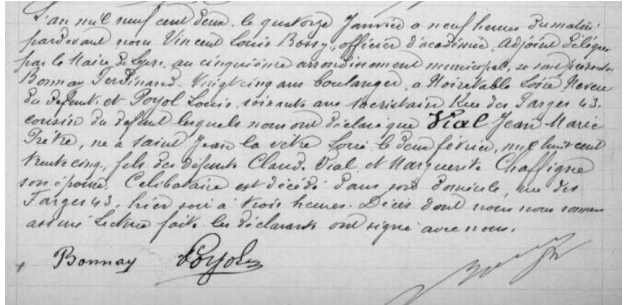 L'an mil neuf cent deux le quatorze Janvier a neuf heures du matin
pardevant nous Vincent Louis Bossy, officier d'académie, Adjoint délégué
par le Maire de Lyon, au cinquième arrondissement municipal, se sont présentés
Bonnay Ferdinand vingt cinq ans boulanger, a Noiretable Loire Neveu
du defunt et Poyol Louis, soixante ans secrétaire Rue des Farges 43.
cousin du defunt lesquels nous ont déclaré que Vial Jean Marie
Prêtre, né a Saint Jean la vetre Loire le deux février, mil huit cent
trente cinq, fils des défunts Claude Vial et Marguerite Chaffigne
son épouse. Célibataire est décédé dans son domicile, rue des
Farges 43, hier soir a trois heures. Décès dont nous nous sommes
assuré Lecture faite les déclarants ont signé avec nous.
Bonnay Poyol